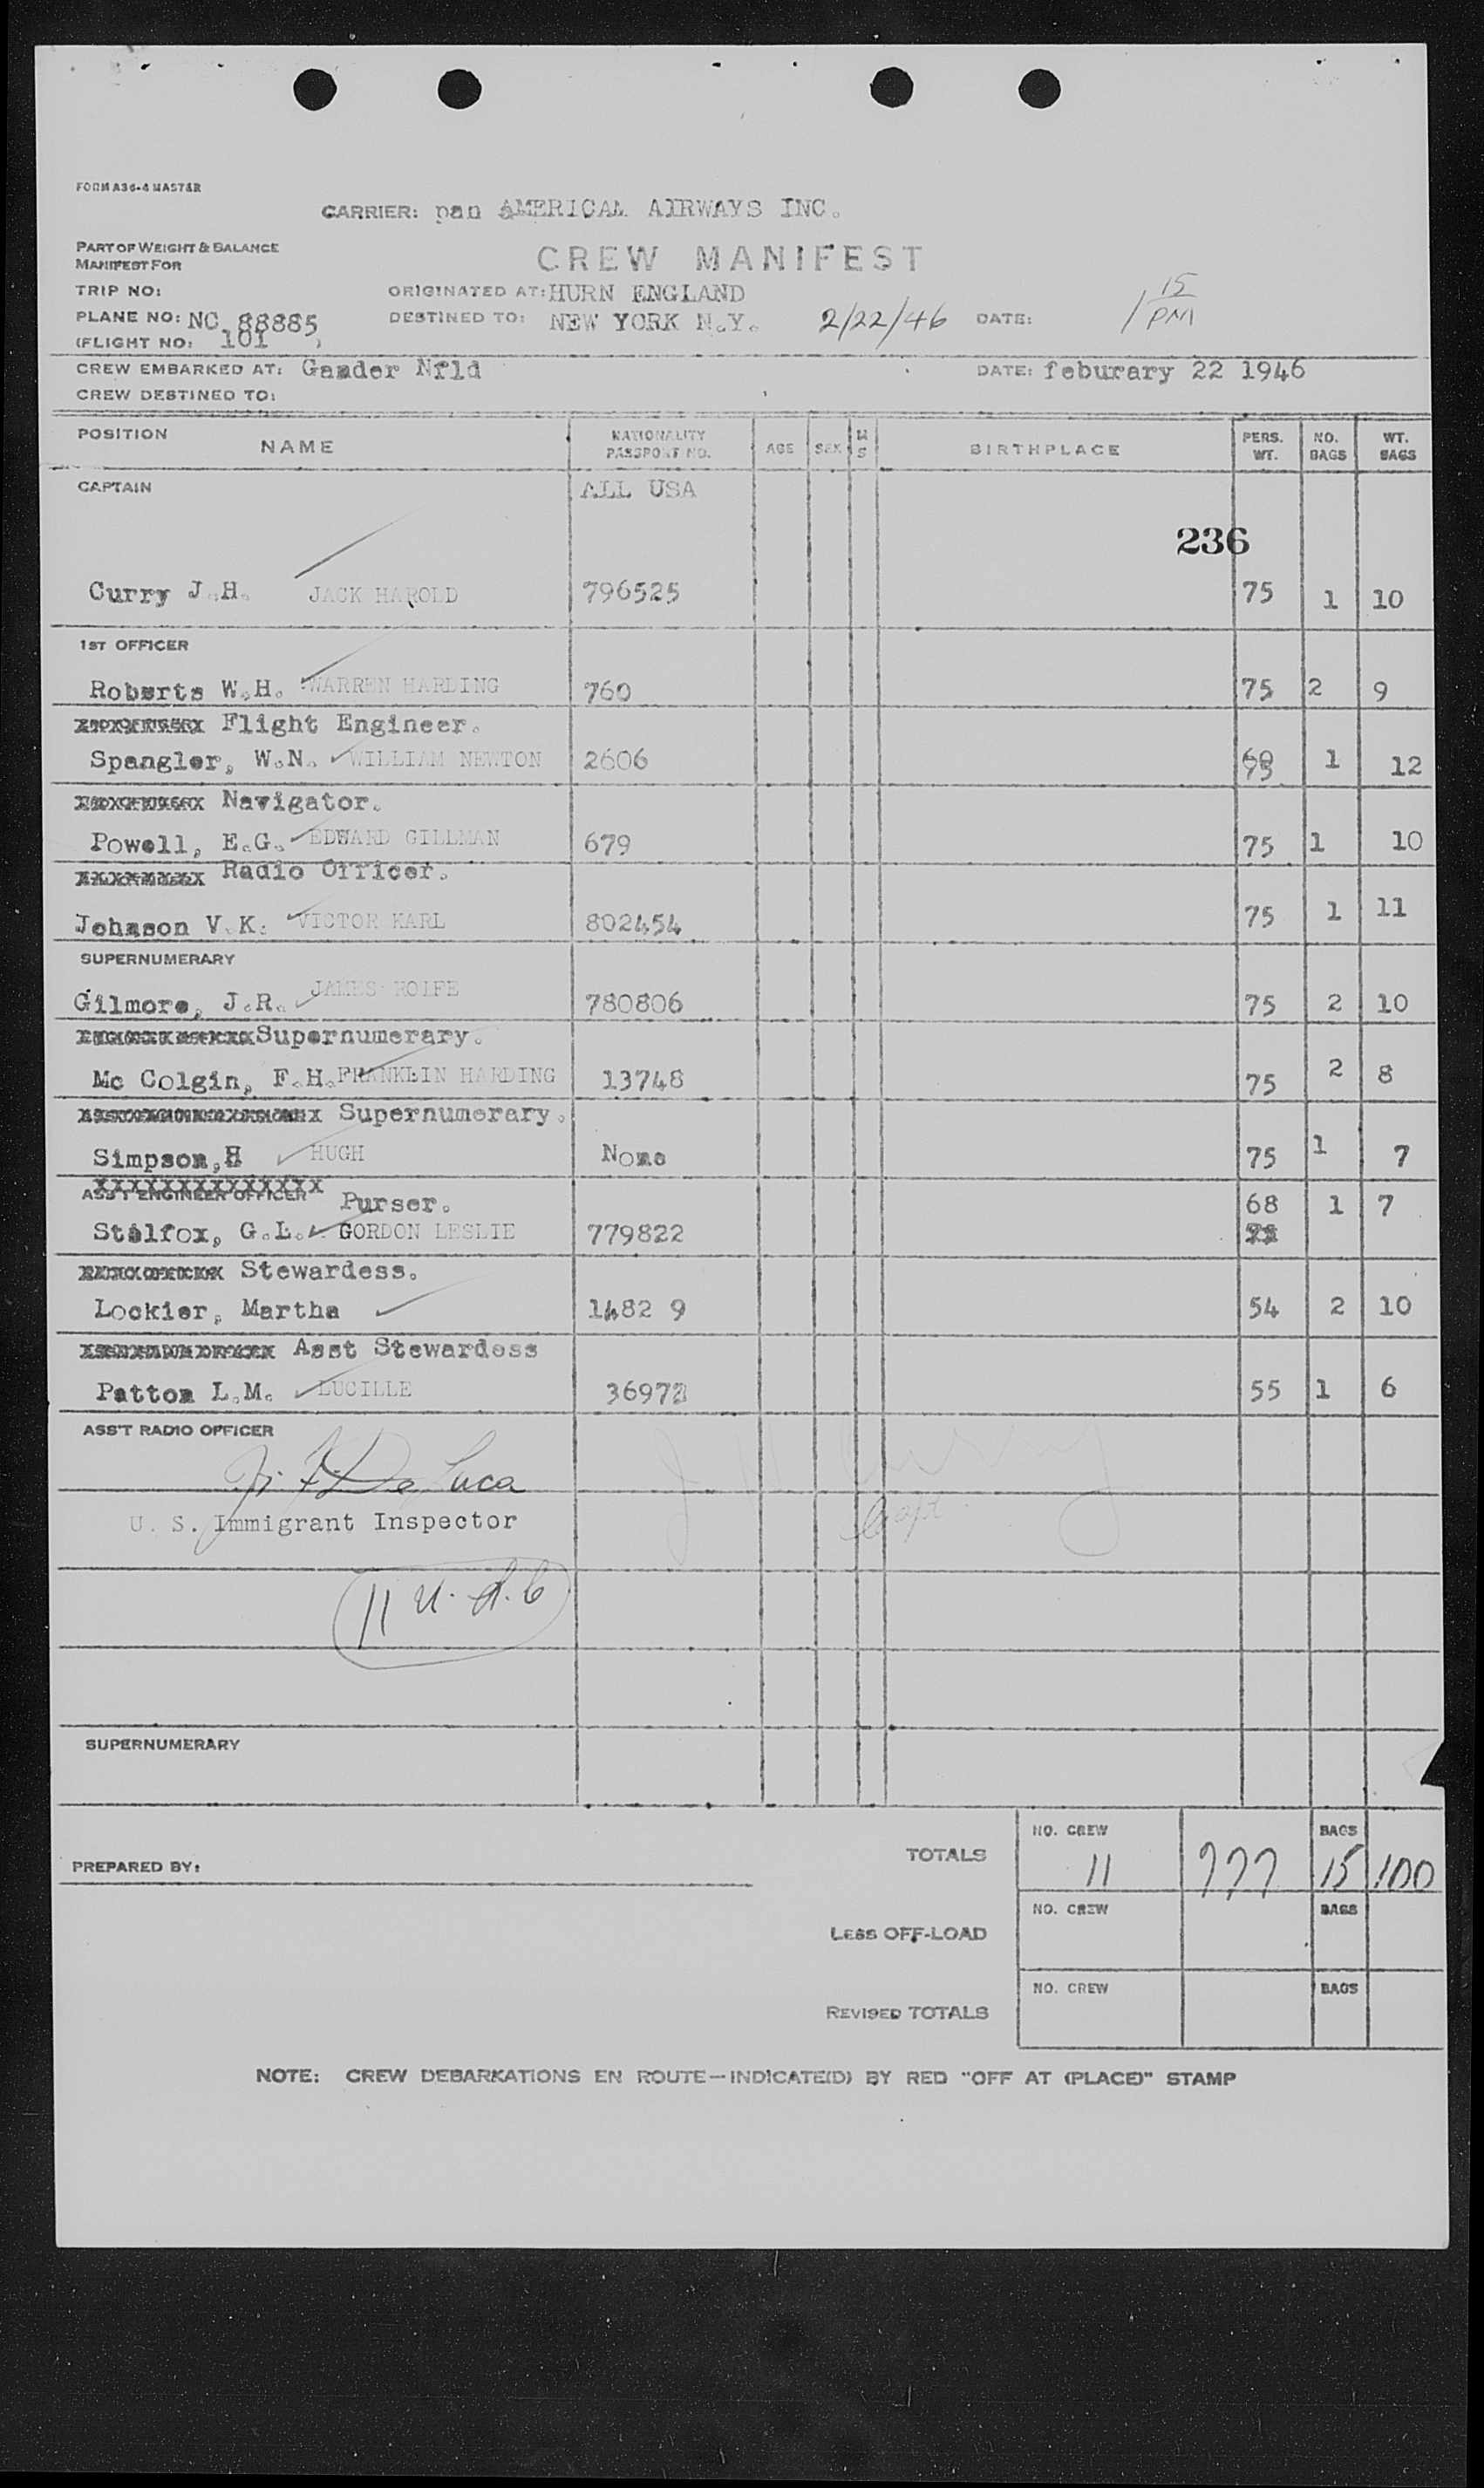 FORM A36-4 MASTER
CARRIER: pan AMERICAL AIRWAYS INC.
PART OF WEIGHT & BALANCE
MANIFEST FOR
CREW MANIFEST
TRIP NO: ORIGINATED AT: HURN ENGLAND
PLANE NO: NC 88885 DESTINED TO: NEW YORK N.Y. 2/22/46 DATE: 1 15 PM
(FLIGHT NO: 101 )
CREW EMBARKED AT: Gander Nfld DATE: feburary 22 1946
CREW DESTINED TO:
POSITION NAME NATIONALITY PASSPORT NO. AGE SEX M S BIRTHPLACE PERS. WT. NO. BAGS WT. BAGS
CAPTAIN ALL USA
236
Curry J.H. JACK HAROLD 796525 75 1 10
1ST OFFICER
Roberts W.H. WARREN HARDING 760 75 2 9
Flight Engineer.
Spangler, W.N. WILLIAM NEWTON 2606 1 12
Navigator.
Powell, E.G. EDWARD GILLMAN 679 75 1 10
Radio Officer.
Johnson V.K. VICTOR KARL 802454 75 1 11
SUPERNUMERARY
Gilmore, J.R. JAMES ROLFE 780806 75 2 10
Supernumerary.
Mc Colgin, F.H. FRANKLIN HARDING 13748 75 2 8
Supernumerary.
Simpson,H HUGH None 75 1 7
XXXXXXXXXXXXXX
ASS'T ENGINEER OFFICER Purser. 68 1 7
Stelfox, G.L. GORDON LESLIE 779822
Stewardess.
Lockier, Martha 1482 9 54 2 10
Asst Stewardess
Patton L.M. LUCILLE 55 1 6
ASS'T RADIO OFFICER
De Luca J H Curry
U. S. Immigrant Inspector Capt.
11 U.S.C
SUPERNUMERARY
PREPARED BY:
TOTALS NO. CREW 11 777 BAGS 15 100
LESS OFF-LOAD NO. CREW BAGS
REVISED TOTALS NO. CREW BAGS
NOTE: CREW DEBARKATIONS EN ROUTE—INDICATE(D) BY RED "OFF AT (PLACE)" STAMP